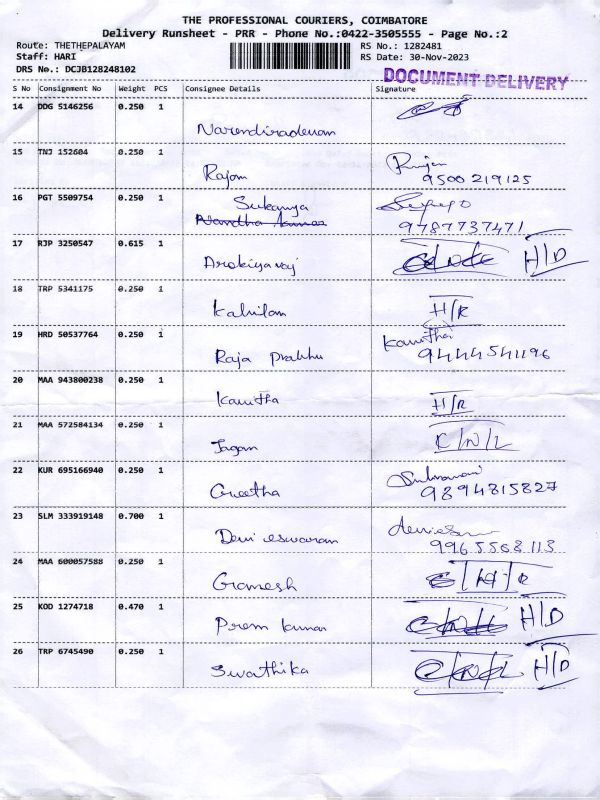 THE PROFESSIONAL COURIERS, COIMBATORE
Delivery Runsheet - PRR - Phone No.:0422-3505555 - Page No.:2
Route: THETHEPALAYAM RS No.: 1282481
Staff: HARI RS Date: 30-Nov-2023
DRS No.: DCJB128248102
DOCUMENT DELIVERY
S No Consignment No Weight PCS Consignee Details Signature
14 DDG 5146256 0.250 1
Narendiradevan
15 TNJ 152604 0.250 1
Rajam
9500219125
16 PGT 5509754 0.250 1 Sukanya
Nandha kumar 9787737471
17 RJP 3250547 0.615 1
Arokiyaraj H/D
18 TRP 5341175 0.250 1
Kabilan H/R
19 HRD 50537764 0.250 1 Kavitha
Raja Prabhu 9444541196
20 MAA 943800238 0.250 1
Kavitha H/R
21 MAA 572584134 0.250 1
Jagan
22 KUR 695166940 0.250 1
Greetha 9894815827
23 SLM 333919148 0.700 1
Devi eswaran 9965568113
24 MAA 600057588 0.250 1
Gramesh
25 KOD 1274718 0.470 1
Prem kumar H/D
26 TRP 6745490 0.250 1
Swathika H/D